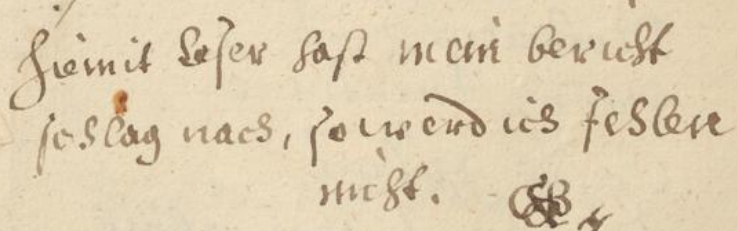 hiemit leser hast mein bericht
schlag nach, so werd ich fehlen
nicht.